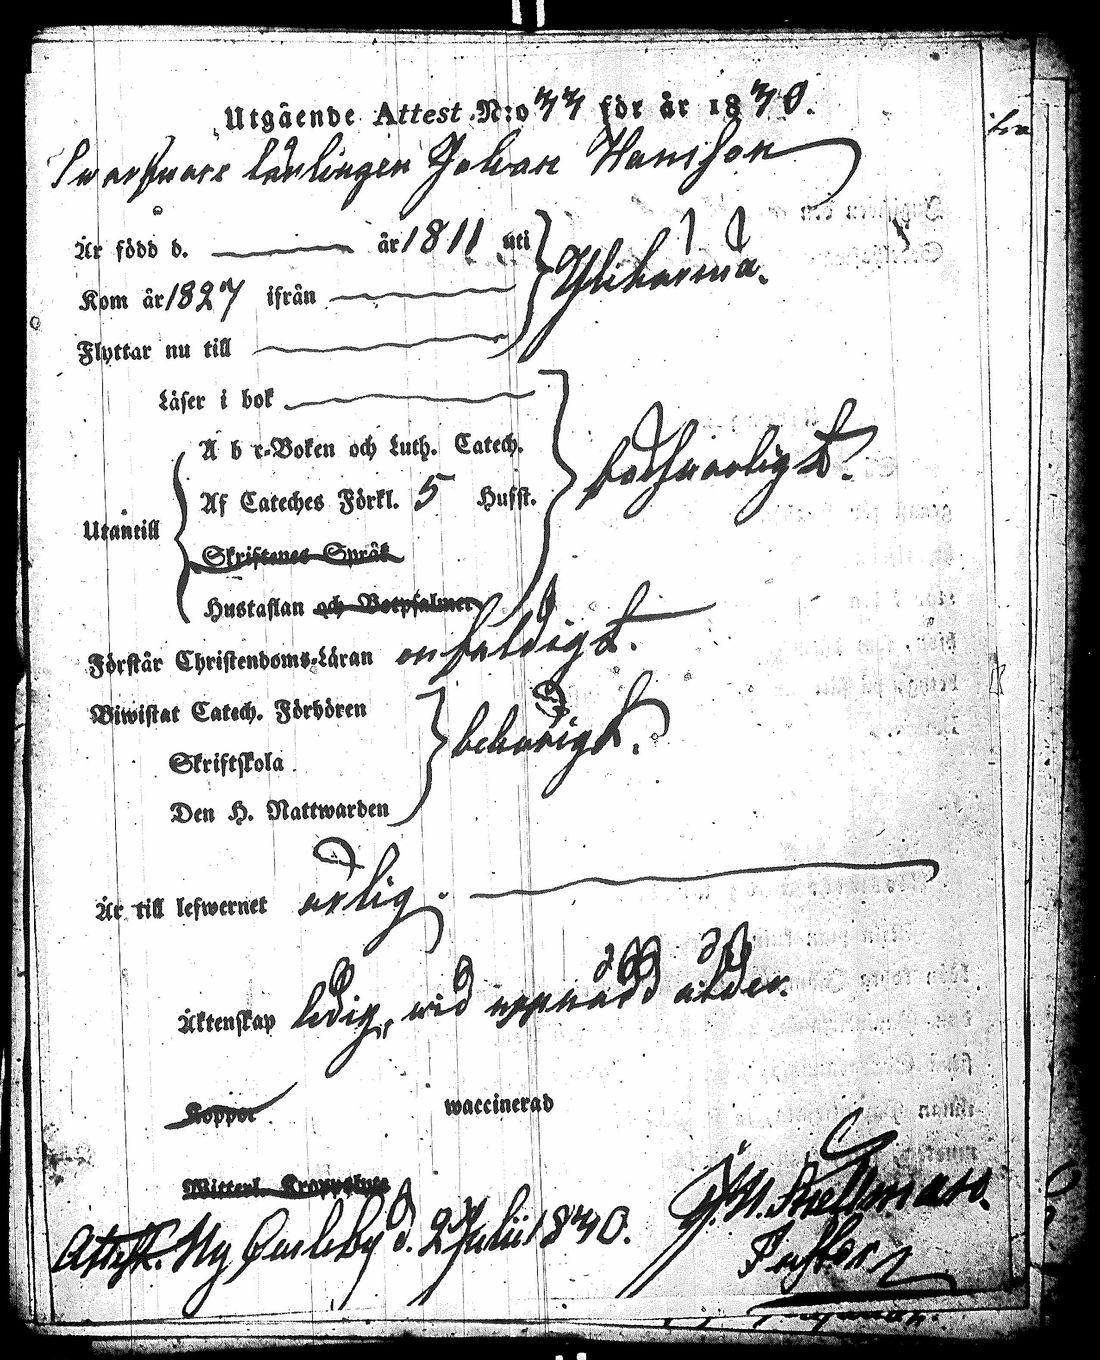 Utgående Attest N:o 44 för år 1840.
Swarfware lärlingen Johan Hansson
Är född d. år 1811 uti
Kom år 1827 ifrån Ylihärmä.
Flyttar nu till
Läser i bok
A b c-Boken och Luth. Catech.
försvarligt.
Af Cateches Förkl. 5 Hufst.
Utantill
Skriftenes Språk
Hustaflan och Botpsalmer
Förstår Christendoms-Läran enfaldigt.
Biwistat Catech. Förhören
behörigt.
Skriftskola
Den H. Nattwarden
Är till lefwernet ärlig.
Äktenskap ledig, wid uppnådd ålder.
Koppor waccinerad
Attest. Ny Carleby d. 2 Julii 1840.
Pastor